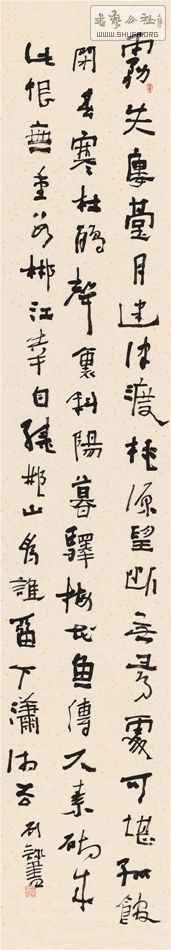 書藝公社
WWW.SHUFA.ORG
霧失廔臺月迷津渡桃源望断无尋處可堪孤館
閉春寒杜鵑聲裏斜陽暮驛梅花魚傳尺素砌成
此恨無重数郴江幸自繞郴山為誰畱下瀟湘去
書